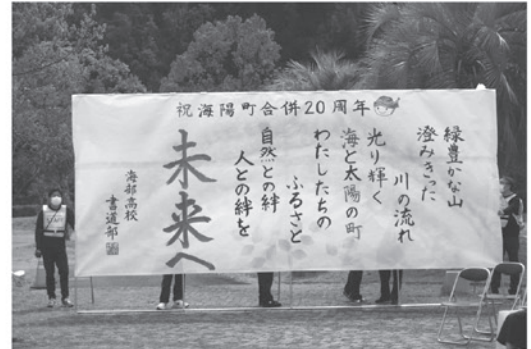 祝海陽町合併20周年
緑豊かな山
澄みきった
川の流れ
光り輝く
海と太陽の町
わたしたちの
ふるさと
自然との絆
人との絆を
未来へ
海部高校
書道部